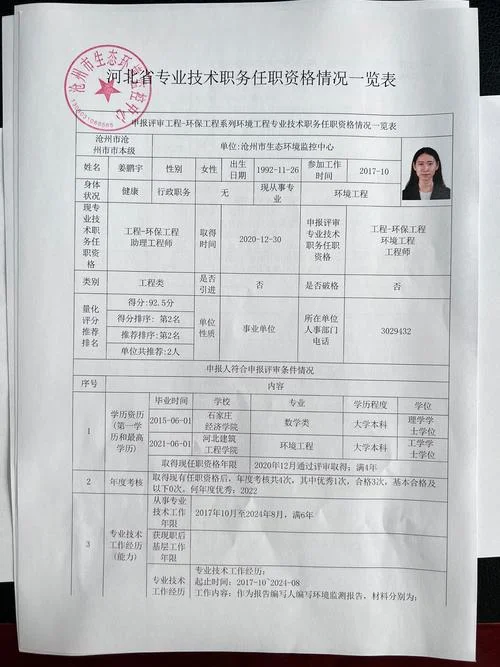 河北省专业技术职务任职资格情况一览表
沧州市生态环境监控中心
申报评审工程-环保工程系列环境工程专业技术职务任职资格情况一览表
沧州市沧州市市本级 单位:沧州市生态环境监控中心
姓名 姜鹏宇 性别 女性 出生日期 1992-11-26 参加工作时间 2017-10
身体状况 健康 行政职务 无 现从事专业 环境工程
现专业技术职务任职资格 工程-环保工程 助理工程师 取得时间 2020-12-30 申报评审专业技术职务任职资格 工程-环保工程 环境工程 工程师
类别 工程类 是否引进 否 是否破格 否
量化评分推荐排名 得分:92.5分 单位性质 事业单位 所在单位人事部门电话 3029432
得分排序: 第2名
推荐排序: 第2名
单位共推荐:2人
申报人符合申报评审条件情况
序号 内容
1 学历资历(第一学历和最高学历) 毕业时间 学校 专业 学历程度 学位
2015-06-01 石家庄经济学院 数学类 大学本科 理学学士学位
2021-06-01 河北建筑工程学院 环境工程 大学本科 工学学士学位
取得现任职资格年限 2020年12月通过评审取得; 满4年
2 年度考核 取得现有任职资格后, 年度考核共4次, 其中优秀1次, 合格3次, 基本合格及
以下0次。何年度优秀: 2022
3 专业技术工作经历(能力) 从事专业技术工作年限 2017年10月至2024年8月, 满6年
获现职后基层工作年限
专业技术工作经历 专业技术工作经历:
起止时间:2017-10~2024-08
工作内容: 作为报告编写人编写环境监测报告, 材料分别为: